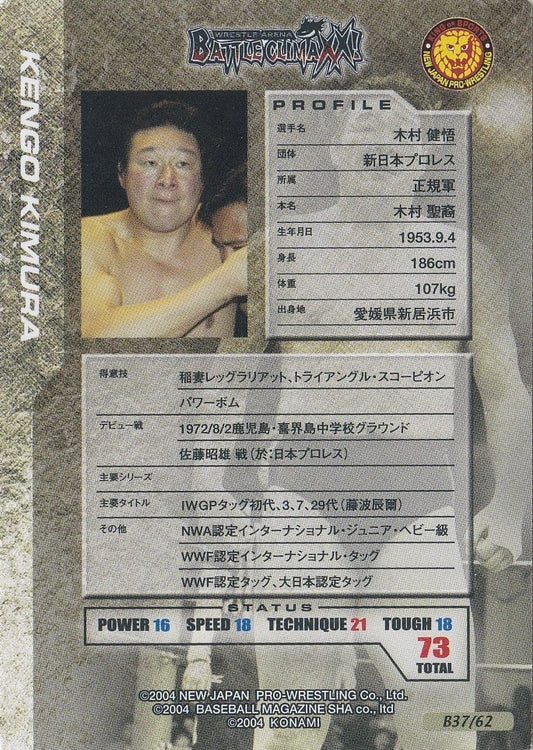 WRESTLE ARENA
BATTLE CLIMAXX!
KING OF SPORTS
NEW JAPAN PRO-WRESTLING
KENGO KIMURA
PROFILE
選手名 木村 健悟
団体 新日本プロレス
所属 正規軍
本名 木村 聖裔
生年月日 1953.9.4
身長 186cm
体重 107kg
出身地 愛媛県新居浜市
得意技 稲妻レッグラリアット、トライアングル・スコーピオン
パワーボム
デビュー戦 1972/8/2鹿児島・喜界島中学校グラウンド
佐藤昭雄 戦(於:日本プロレス)
主要シリーズ
主要タイトル IWGPタッグ初代、3、7、29代(藤波辰爾)
その他 NWA認定インターナショナル・ジュニア・ヘビー級
WWF認定インターナショナル・タッグ
WWF認定タッグ、大日本認定タッグ
STATUS
POWER 16 SPEED 18 TECHNIQUE 21 TOUGH 18
73
TOTAL
©2004 NEW JAPAN PRO-WRESTLING Co., Ltd.
©2004 BASEBALL MAGAZINE SHA co., ltd
©2004 KONAMI
B37/62